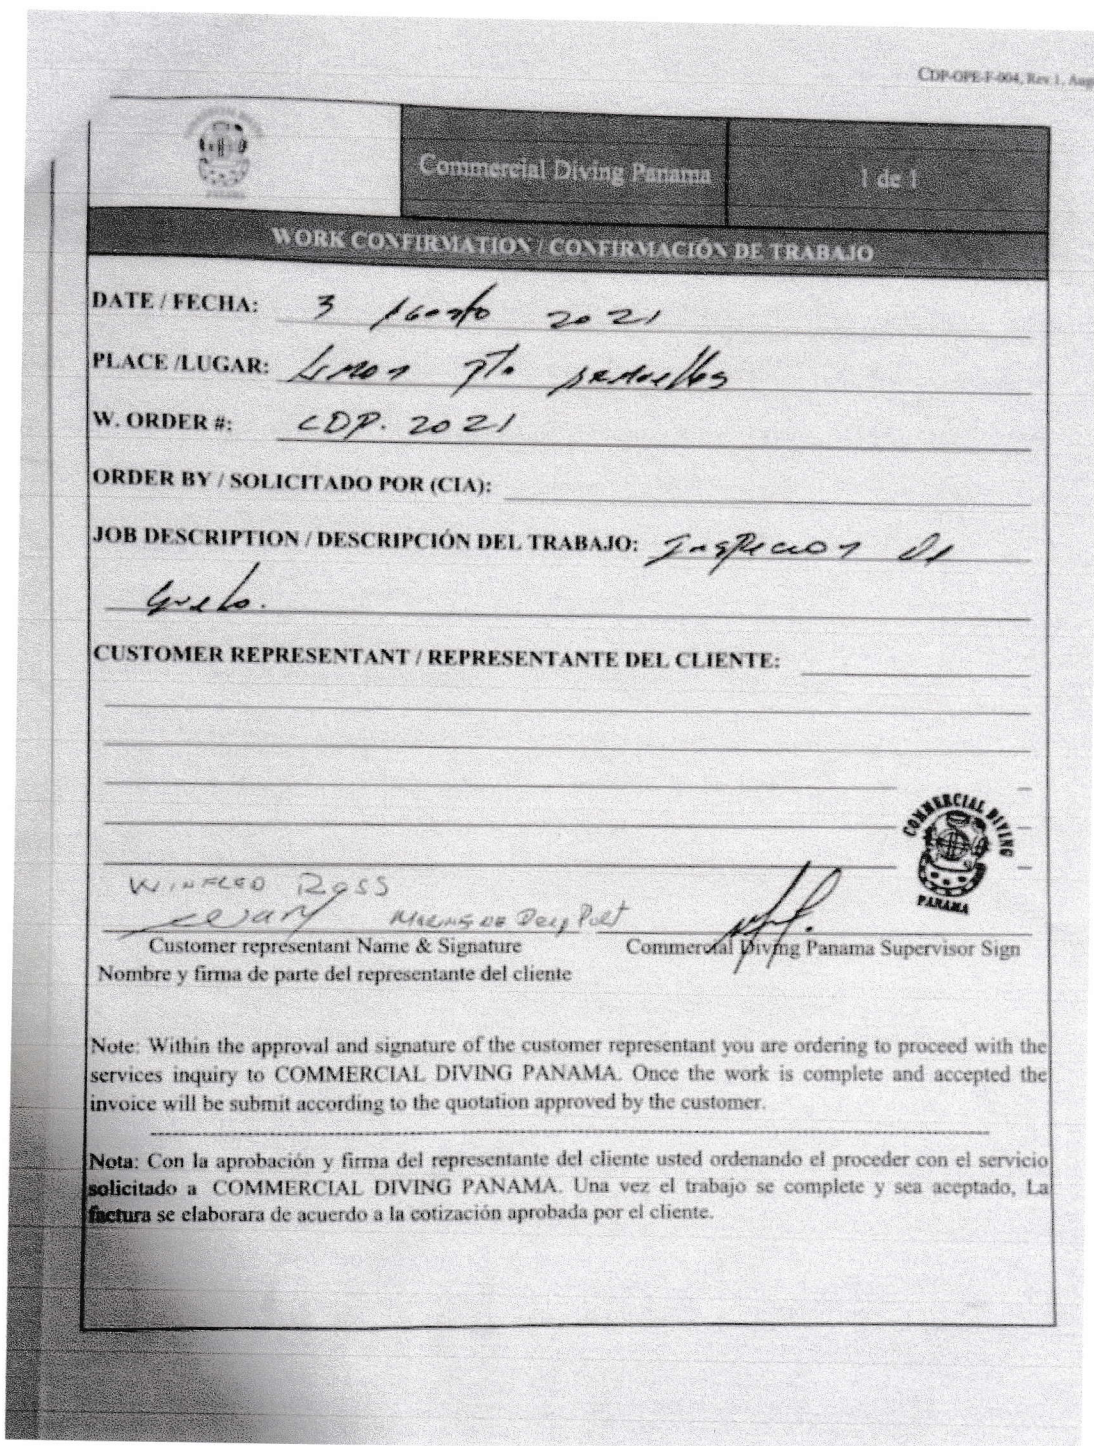 CDP-OPE-F-004, Rev 1, Aug
COMMERCIAL DIVING
PANAMA
Commercial Diving Panama
1 de 1
WORK CONFIRMATION / CONFIRMACIÓN DE TRABAJO
DATE / FECHA: 3 Agosto 2021
PLACE /LUGAR: Limon pto
W. ORDER #: CDP. 2021
ORDER BY / SOLICITADO POR (CIA):
JOB DESCRIPTION / DESCRIPCIÓN DEL TRABAJO: Inspecion de
CUSTOMER REPRESENTANT / REPRESENTANTE DEL CLIENTE:
COMMERCIAL DIVING
PANAMA
WINFLED ROSS
Customer representant Name & Signature
Commercial Diving Panama Supervisor Sign
Nombre y firma de parte del representante del cliente
Note: Within the approval and signature of the customer representant you are ordering to proceed with the
services inquiry to COMMERCIAL DIVING PANAMA. Once the work is complete and accepted the
invoice will be submit according to the quotation approved by the customer.
Nota: Con la aprobación y firma del representante del cliente usted ordenando el proceder con el servicio
solicitado a COMMERCIAL DIVING PANAMA. Una vez el trabajo se complete y sea aceptado, La
factura se elaborara de acuerdo a la cotización aprobada por el cliente.